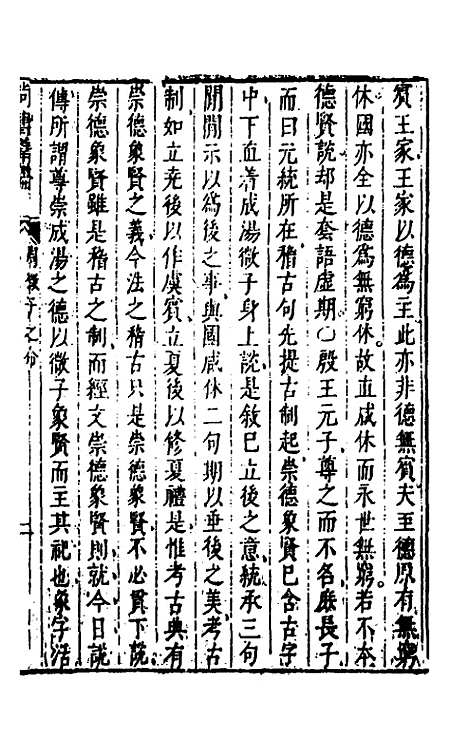 賓王家王家以德為主此亦非德無賓夫至德原有無窮
休國亦全以德為無窮休故血咸休而永世無窮若不本
德賢說却是套語虛期〇殷王元子尊之而不名庶長子
而曰元統所在稽古句先提古制起崇德象賢已含古字
中下血着成湯微子身上說是敘已立後之意統承三句
開開示以為後之事與國咸休二句期以垂後之美考古
制如立堯後以作虞賓立夏後以修夏禮是惟考古典有
崇德象賢之義今法之稽古只是崇德象賢不必貫下說
崇德象賢雖是稽古之制而經文崇德象賢則就今日說
傳所謂尊崇成湯之德以微子象賢而王其祀也象字活
微子之命
二